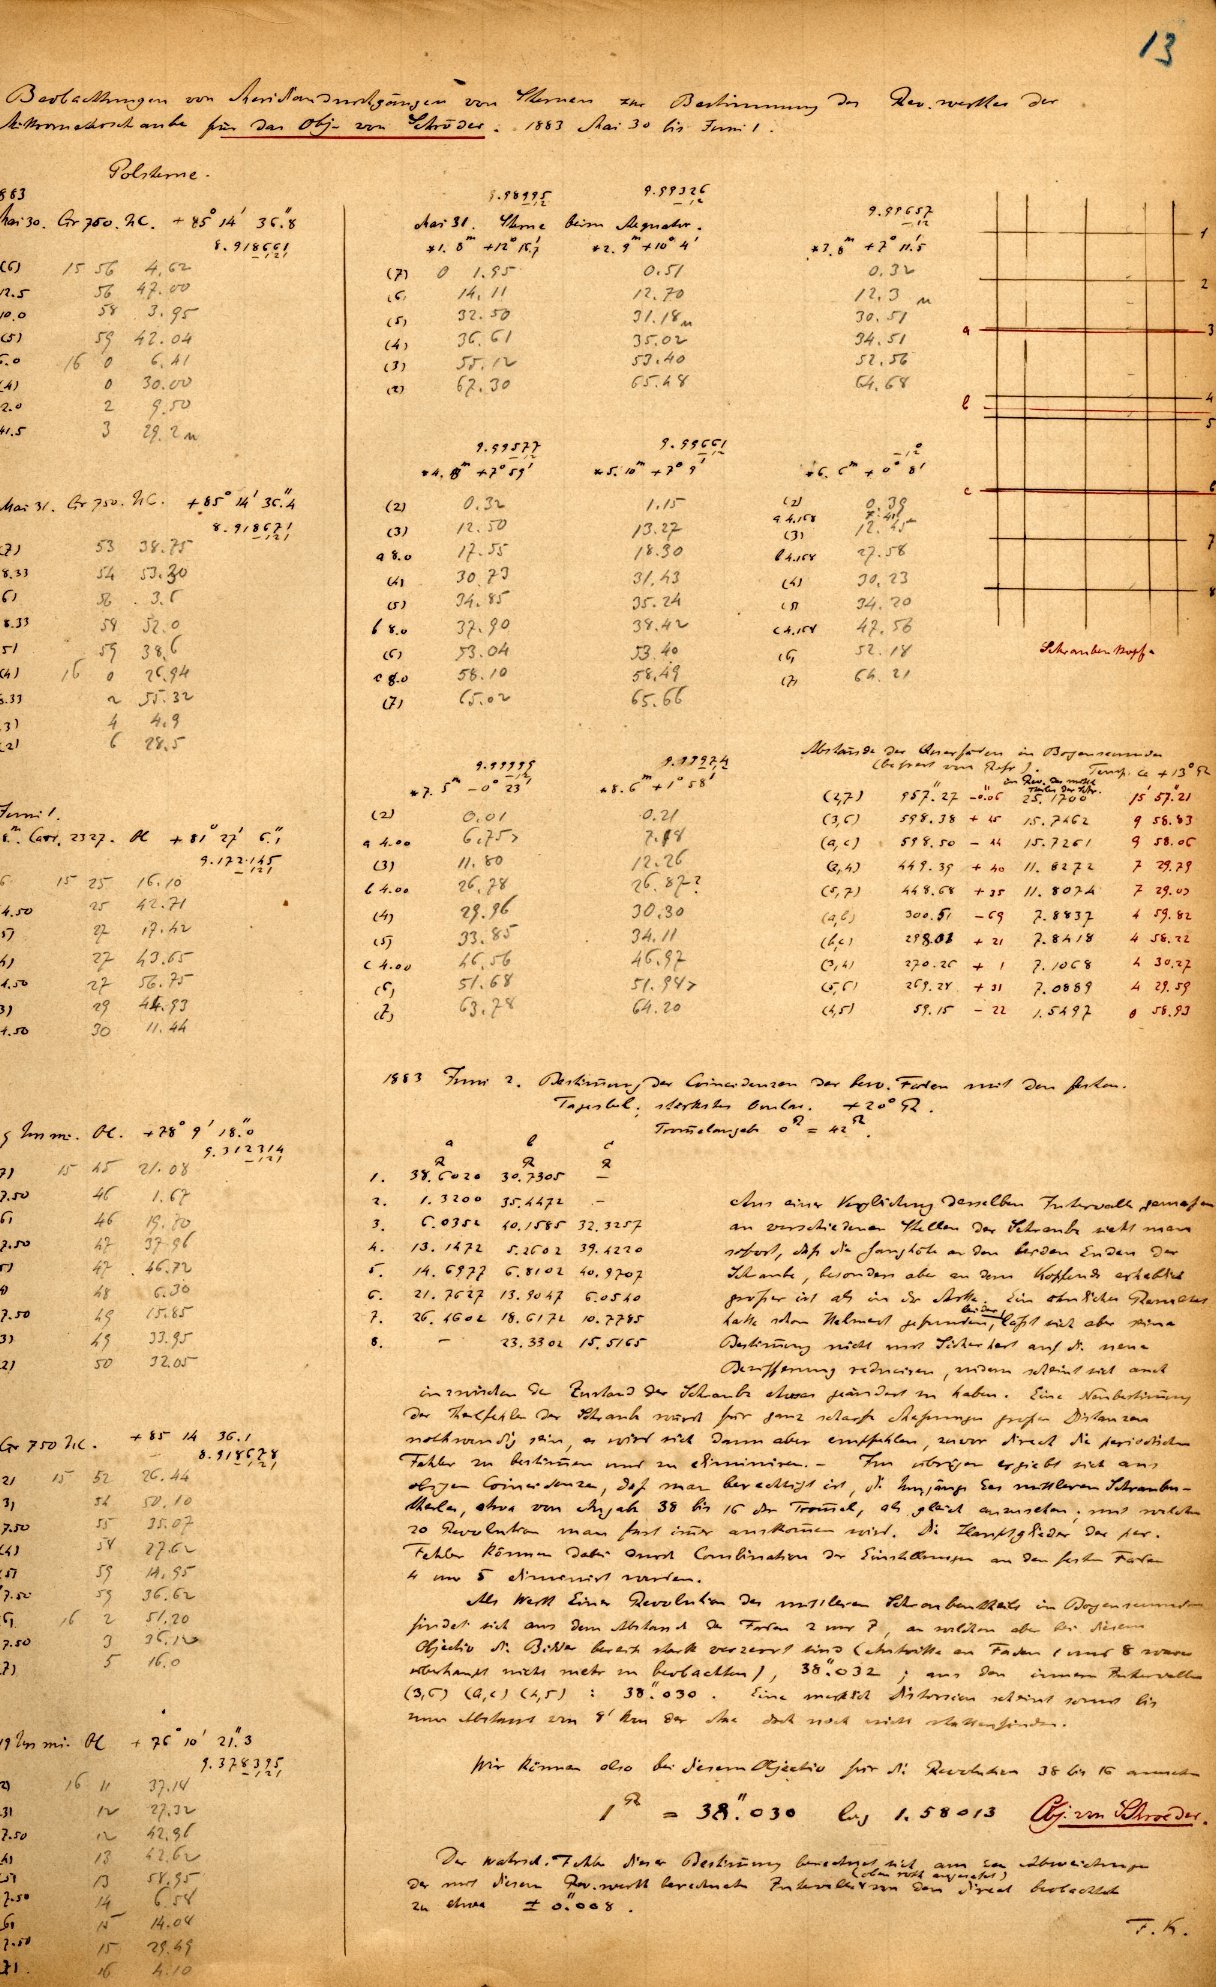 13
Beobachtungen von Meridiandurchgängen von Sternen zur Bestimmung des Rev. werthes der
Mikrometerschraube für das Obj. von Schröder. 1883 Mai 30 bis Juni 1.
Polsterne.
883
Mai 30. Gr 750. UC. +85° 14' 36."8
8.918661
(6) 15 56 4.62
12.5 56 47.00
10.0 58 3.95
(5) 59 42.04
6.0 16 0 6.41
(4) 0 30.00
2.0 2 9.50
41.5 3 29.2
Mai 31. Gr 750. UC. +85° 14' 36."4
8.918671
7) 53 38.75
8.33 54 53.30
6) 56 3.6
8.33 58 52.0
5) 59 38.6
(4) 16 0 26.94
8.33 2 55.32
3) 4 4.9
(2) 6 28.5
Juni 1.
8m. Carr. 2327. OC +81° 27' 6."1
9.172145
6 15 25 16.10
4.50 25 42.71
5) 27 17.42
4) 27 43.65
4.50 27 56.75
3) 29 44.93
4.50 30 11.44
9 Urs mi. OC. +78° 9' 18."0
9.312314
7) 15 45 21.08
7.50 46 1.67
6) 46 19.70
7.50 47 37.96
5) 47 46.72
48 6.30
7.50 49 15.85
3) 49 33.95
2) 50 32.05
Gr 750 UC. +85 14 36.1
8.918678
2) 15 52 26.44
3) 54 50.10
7.50 55 35.07
(4) 58 27.62
(5) 59 14.95
7.50 59 36.62
6) 16 2 51.20
7.50 3 36.12
7) 5 16.0
19 Urs mi. OC +76° 10' 21."3
9.378395
2) 16 11 37.14
3) 12 27.32
7.50 12 42.96
4) 13 42.62
(5) 13 58.95
7.50 14 6.58
6) 15 14.04
7.50 15 29.49
7). 16 4.10
9.98995 9.99326 9.99657
Mai 31. Sterne beim Aequator.
*1. 8m +12° 15.'7 *2. 9m +10° 4' *3. 8m +7° 11.'5
(7) 0 1.95 0.51 0.32
(6) 14.11 12.70 12.3
(5) 32.50 31.18 30.51
(4) 36.61 35.02 34.51
(3) 55.12 53.40 52.56
(2) 67.30 65.48 64.68
9.99577 9.99661
*4. 8m +7° 59' *5. 10m +7° 9' *6. 6m +0° 8'
(2) 0.32 1.15 (2) 0.39
a 4.158 7.49
(3) 12.50 13.27 (3) 12.45
a 8.0 17.55 18.30 b 4.158 27.58
(4) 30.73 31.43 (4) 30.23
(5) 34.85 35.24 (5) 34.20
b 8.0 37.90 38.42 c 4.158 47.56
(6) 53.04 53.40 (6) 52.18
c 8.0 58.10 58.49 (7) 64.21
(7) 65.02 65.66
9.99999 9.99974
*7. 5m −0° 23' *8. 6m +1° 58'
(2) 0.01 0.21
a 4.00 6.75 7.18
(3) 11.80 12.26
b 4.00 26.78 26.87?
(4) 29.96 30.30
(5) 33.85 34.11
c 4.00 46.56 46.97
(6) 51.68 51.94
(7) 63.78 64.20
1
2
a 3
b 4
5
c 6
7
8
Schraubenkopf
Abstände der Querfäden in Bogensecunden
(befreit von Refr.). Temp. ca +13° R
in Rev. des mittl. Theiles der Schr.
(2,7) 957."27 −0."06 25.1700 15' 57."21
(3,6) 598.38 + 45 15.7462 9 58.83
(a,c) 598.50 − 44 15.7261 9 58.06
(2,4) 449.39 + 40 11.8272 7 29.79
(5,7) 448.68 + 35 11.8074 7 29.03
(a,b) 300.51 − 69 7.8837 4 59.82
(b,c) 298.01 + 21 7.8418 4 58.22
(3,4) 270.26 + 1 7.1068 4 30.27
(5,6) 269.28 + 31 7.0889 4 29.59
(4,5) 59.15 − 22 1.5497 0 58.93
1883 Juni 2. Bestimmung der Coincidenzen der bew. Faden mit den festen.
Tagesbel. stärkstes Ocular. +20° R.
Trommelangabe 0R = 42R.
a b c
R R R
1. 38.6020 30.7305 –
2. 1.3200 35.4472 –
3. 6.0352 40.1585 32.3257
4. 13.1472 5.2602 39.4220
5. 14.6977 6.8102 40.9707
6. 21.7627 13.9047 6.0540
7. 26.4602 18.6172 10.7785
8. – 23.3302 15.5165
Aus einer Vergleichung desselben Intervalls gemessen
an verschiedenen Stellen der Schraube sieht man
sofort, daß die Ganghöhe an den beiden Enden der
Schraube, besonders aber an dem Kopfende erheblich
größer ist als in der Mitte. Ein ähnliches Resultat
hatte schon Helmert gefunden, läßt sich aber seine
Bestimmung nicht mit Sicherheit auf die neue
Bezifferung reduciren, zudem scheint sich auch
inzwischen der Zustand der Schraube etwas geändert zu haben. Eine Neubestimmung
der Theilfehler der Schraube würde für ganz scharfe Messungen großer Distanzen
nothwendig sein, es wird sich dann aber empfehlen, zuvor direct die periodischen
Fehler zu bestimmen und zu eliminiren. – Im übrigen ergiebt sich aus
obigen Coincidenzen, daß man berechtigt ist, die Umgänge des mittleren Schrauben-
theiles, etwa von Angabe 38 bis 16 der Trommel, als gleich anzusehen, mit welchen
20 Revolution man fast immer auskommen wird. Die Hauptglieder der per.
Fehler können dabei durch Combination der Einstellungen an den festen Faden
4 und 5 eliminirt werden.
Als Werth Einer Revolution des mittleren Schraubentheils in Bogensecunden
findet sich aus dem Abstand der Faden 2 und 7, an welchen aber bei diesem
Objectiv die Bilder bereits stark verzerrt sind (Antritte an Faden 1 und 8 waren
überhaupt nicht mehr zu beobachten), 38."032 ; aus den innern Intervallen
(3,6) (a,c) (4,5) : 38."030 . Eine merklich Distorsion scheint somit bis
zum Abstand von 8' von der Axe doch noch nicht stattzufinden.
Wir können also bei diesem Objectiv für die Revolution 38 bis 16 annehmen
1R = 38."030 log 1.58013 Obj. von Schroeder.
Der wahrsch. Fehler dieser Bestimmung berechnet sich aus den Abweichungen
(oben roth angesetzt)
der mit diesem Rev. werth berechneten Intervalle von den direct beobachteten
zu etwa ± 0."008 .
F. K.